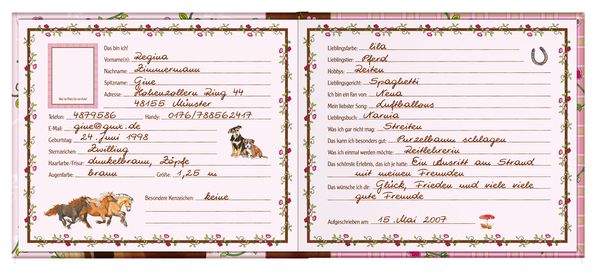 Das bin ich!
Vorname(n): Regina
Nachname: Zimmermann
Spitzname: Gine
Adresse: Hohenzollern Ring 44
48155 Münster
Telefon: 4879586 Handy: 0176/788562417
E-Mail: gine@gmx.de
Geburtstag: 24. Juni 1998
Sternzeichen: Zwilling
Haarfarbe/Frisur: dunkelbraun, Zöpfe
Augenfarbe: braun Größe: 1,25 m
Besondere Kennzeichen: keine
Lieblingsfarbe: lila
Lieblingstier: Pferd
Hobbys: Reiten
Lieblingsgericht: Spaghetti
Ich bin ein Fan von: Nena
Mein liebster Song: Luftballons
Lieblingsbuch: Narnia
Was ich gar nicht mag: Streiten
Das kann ich besonders gut: Purzelbaum schlagen
Was ich einmal werden möchte: Reitlehrerin
Das schönste Erlebnis, das ich je hatte: Ein Ausritt am Strand
mit meinen Freunden
Das wünsche ich dir: Glück, Frieden und viele viele
gute Freunde
Aufgeschrieben am: 15. Mai 2007